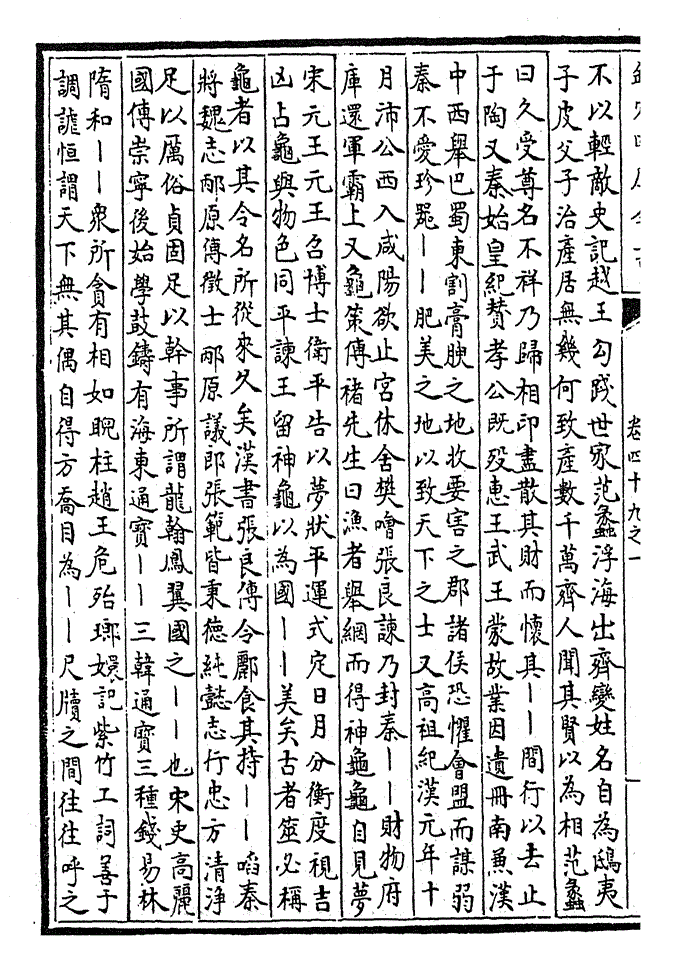 卷四十九之一
不以輕敵史記越王勾踐世家范蠡浮海出齊變姓名自為鴟夷
子皮父子治產居無幾何致產數千萬齊人聞其賢以為相范蠡
曰久受尊名不祥乃歸相印盡散其財而懷其丨丨間行以去止
于陶又秦始皇紀贊孝公既歿惠王武王蒙故業因遺冊南兼漢
中西舉巴蜀東割膏腴之地收要害之郡諸侯恐懼會盟而謀弱
秦不愛珍器丨丨肥美之地以致天下之士又高祖紀漢元年十
月沛公西入咸陽欲止宮休舍樊噲張良諫乃封秦丨丨財物府
庫還軍霸上又龜策傳褚先生曰漁者舉網而得神龜龜自見夢
宋元王元王召博士衛平告以夢狀平運式定日月分衡度視吉
凶占龜與物色同平諫王留神龜以為國丨丨美矣古者筮必稱
龜者以其令名所從來久矣漢書張良傳令酈食其持丨丨啗秦
將魏志邴原傳徵士邴原議郎張範皆秉德純懿志行忠方清淨
足以厲俗貞固足以幹事所謂龍翰鳳翼國之丨丨也宋史高麗
國傳崇寧後始學鼓鑄有海東通寶丨丨三韓通寶三種錢易林
隋和丨丨衆所貪有相如睨柱趙王危殆瑯嬛記紫竹工詞善于
調謔恒謂天下無其偶自得方喬目為丨丨尺牘之間往往呼之